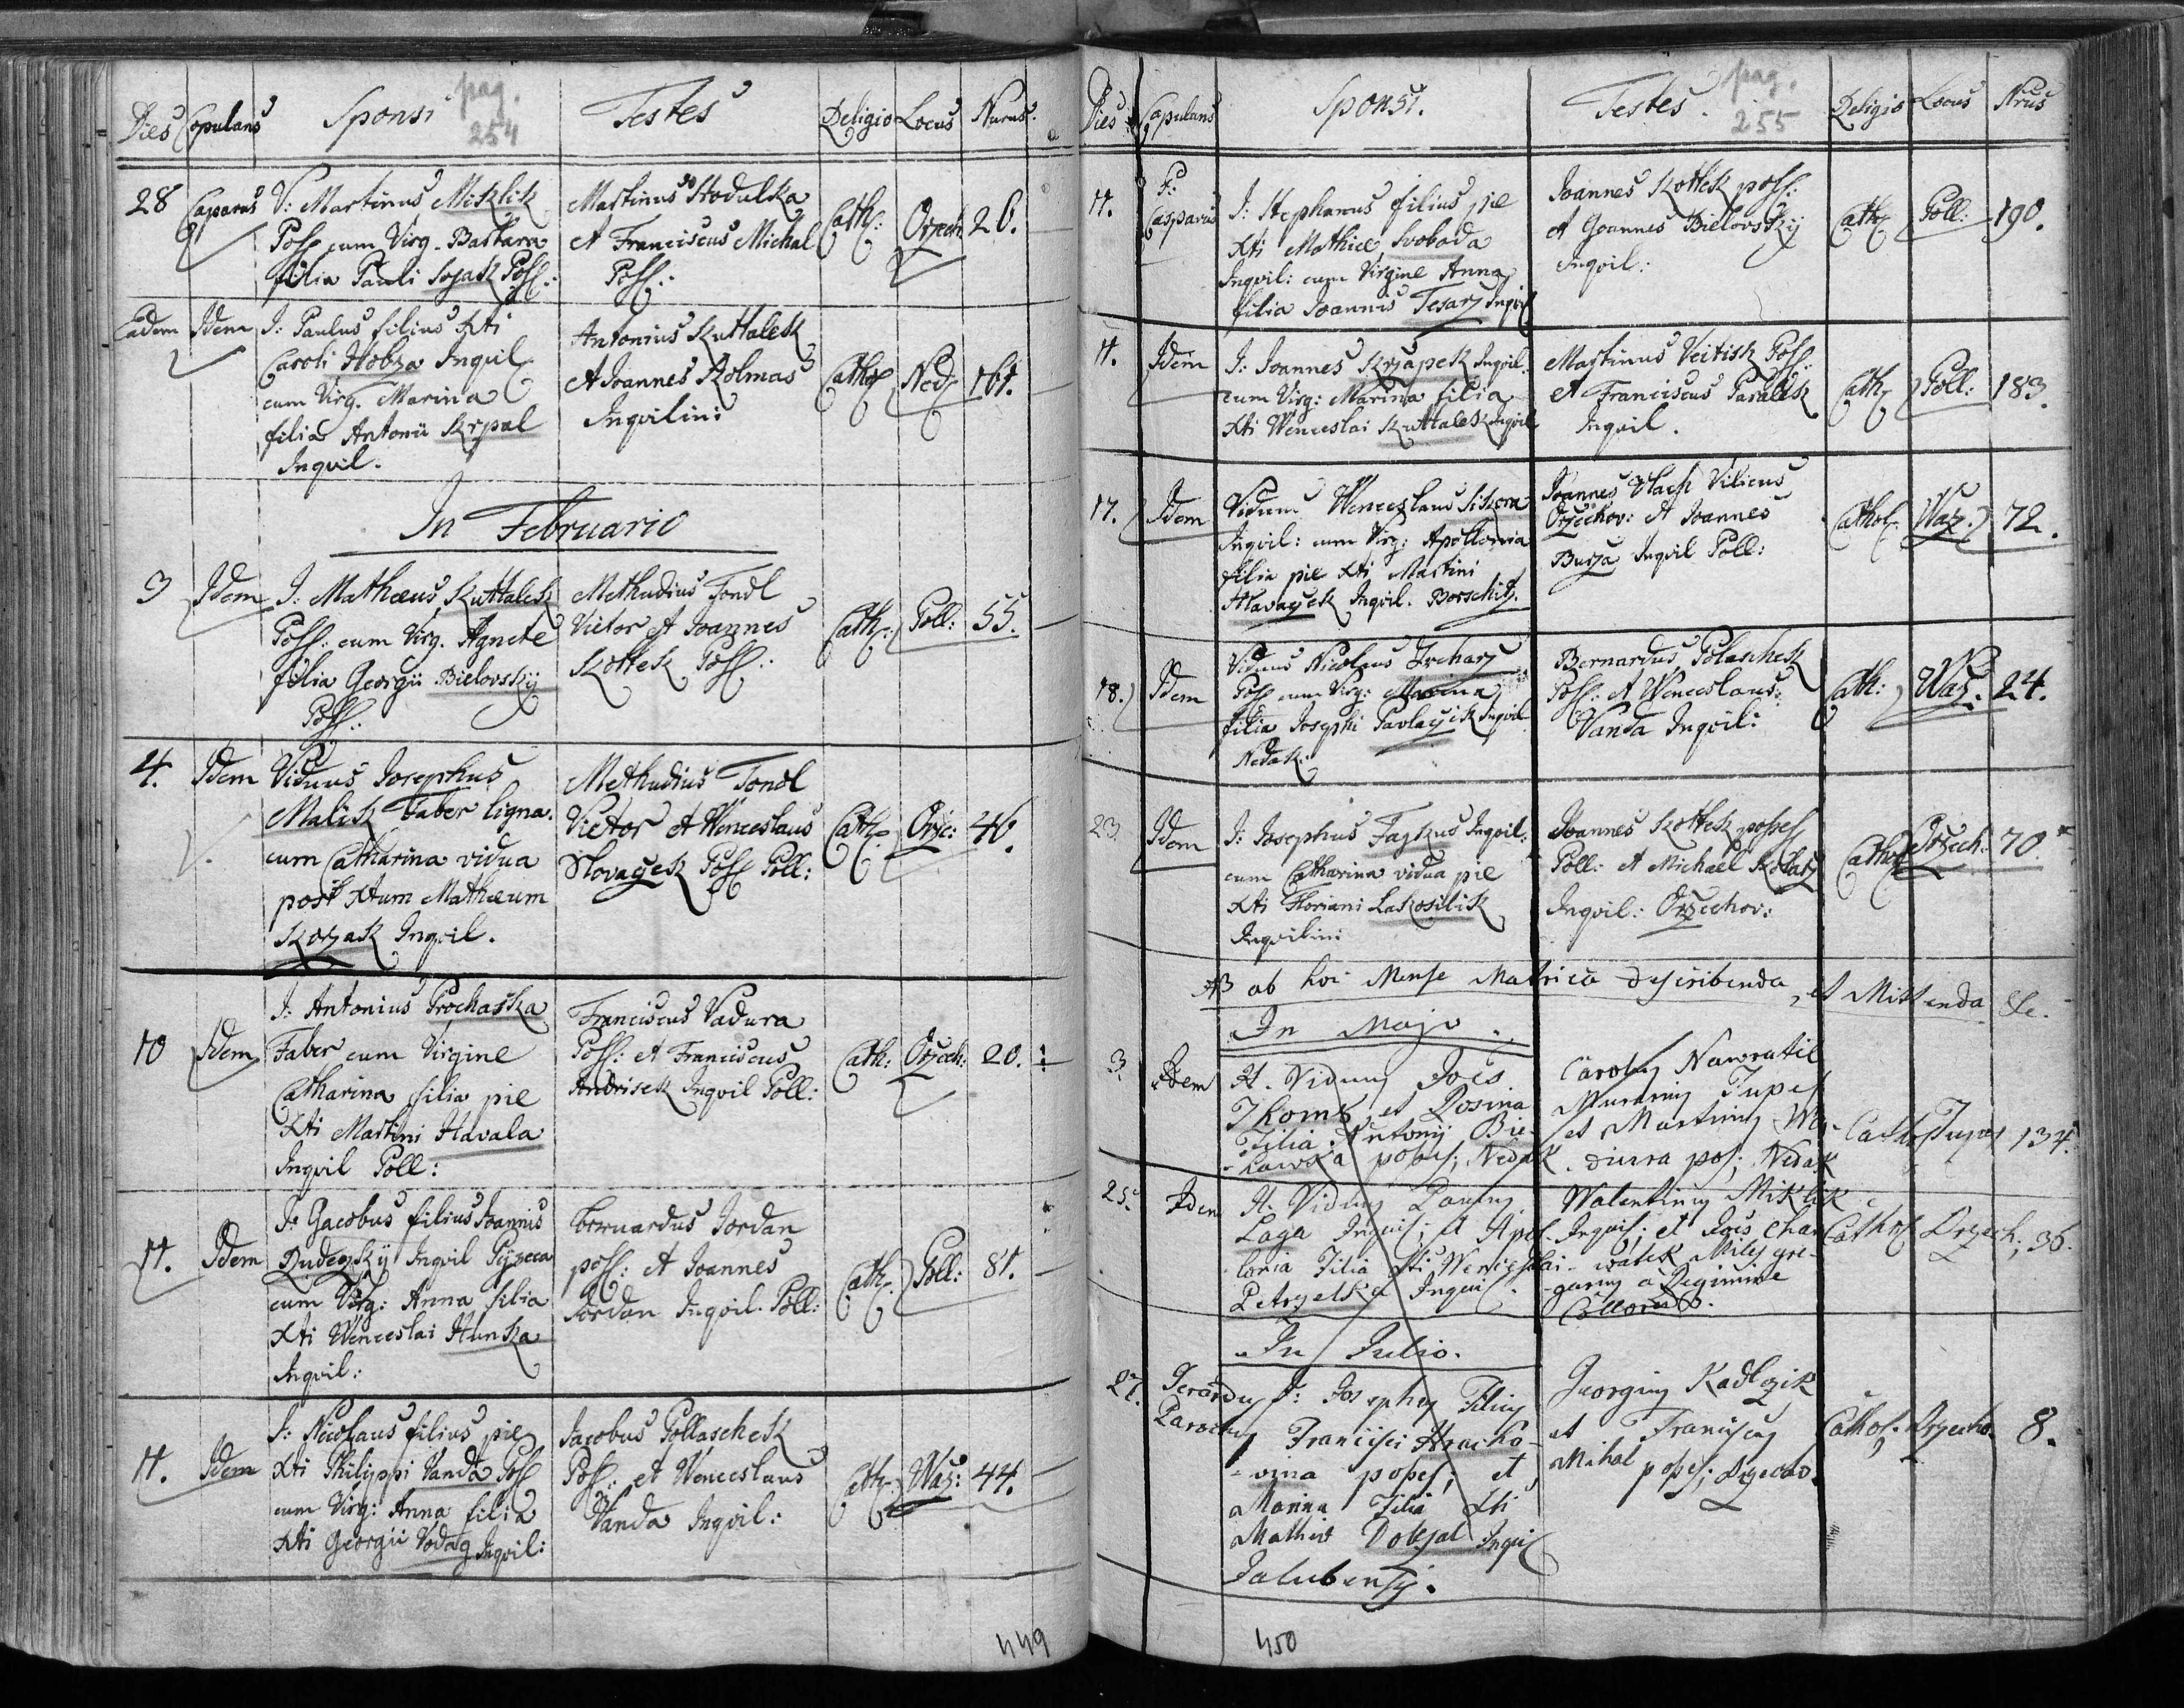 pag.
254
Dies Copulans Sponsi Testes Religio Locus Nurus.
28 Casparus V: Martinus Miklik
Poss cum Virg. Barbara
filia Pauli Sojak Poss.:
Martinus Stodulka
et Franciscus Michal
Poss.:
Cath: Orzech 26.
Eadem Idem J: Paulus filius Xti
Caroli Hobza Inqvil
cum Virg. Marina
filia Antonii Krpal
Inqvil.
Antonius Kuttalek
et Joannes Kolmas
Inqvilini
Cathol Ned 161.
In Februario
3 Idem J: Mathæus Kuttalek
Poss: cum Virg. Agnete
filia Georgii Bielovsky
Poss:
Methudius Tondl
Victor et Joannes
Kottek Poss:
Cath: Poll: 55.
4. Idem Viduus Josephus
Malik Faber ligna.
cum Catharina vidua
post Xtum Mathæum
Korzak Inqvil.
Methudius Tondl
Victor et Wenceslaus
Slovaczek Poss Poll:
Cath: Orze: 46.
10 Idem J: Antonius Prochaska
Faber cum Virgine
Catharina filia pie
Xti Martini Havala
Inqvil Poll:
Franciscus Vadura
Poss: et Franciscus
Andrisek Inqvil Poll:
Cath: Orzech: 20.
11. Idem J: Jacobus filius Joannis
Rudezky Inqvil
cum Virg: Anna filia
Xti Wenceslai Hunka
Inqvil:
Bernardus Jordan
poss: et Joannes
Jordan Inqvil. Poll:
Cath. Poll: 81.
11. Idem J: Nicolaus filius pie
Xti Philippi Vanda Poss
cum Virg: Anna filia
Xti Georgii Inqvil:
Jacobus Pollaschek
Poss: et Wenceslaus
Vanda Inqvil:
Cath. Waz: 44.
449
pag.
255
Dies Copulans Sponsi. Testes. Religio Locus Nrus
11. P: Casparus J: Stephanus filius pie
Xti Mathiæ Svoboda
Inqvil: cum Virgine Anna
filia Joannis Tesarz Inqvil
Joannes Kottek poss:
et Joannes Bielovsky
Inqvil:
Cath Poll: 190.
11. Idem J: Joannes Krzapek Inqvil:
cum Virg: Marina filia
Xti Wenceslai Kuttalek Inqvil
Martinus Veitisk Poss:
et Franciscus Pasalek
Inqvil.
Cath Poll: 183.
17. Idem Viduus Wenceslaus Sikora
Inqvil: cum Virg: Apollonia
filia pie Xti Martini
Hlavaczek Inqvil. Borschitz.
Joannes Vlach Vilicus
Orzechov: et Joannes
Burza Inqvil Poll:
Cathol. Waz. 72.
18. Idem Viduus Nicolaus Zrcharz
Poss cum Virg: Marina
filia Josephi Pavlaczik Inqvil
Nedak:
Bernardus Polaschek
Poss: et Wenceslaus
Vanda Inqvil:
Cath: Waz. 24.
23. Idem J: Josephus Fagkus Inqvil.
cum Catharina vidua pie
Xti Floriani Lakosilik
Inqvilini
Joannes Kottek posses
Poll: et Michael Kolarz
Inqvil: Orzechov:
Cathol Orzech: 70.
NB ab hoc Mense Matrica describenda, et Mittenda &c.
In Majo.
3. Idem H. Viduus Joës
Thomk et Rosina
Filia Antonij Bie-
-lawska poses; Nedak.
Carolus Nawratil
Murarius Tupes
et Martinus Wy-
-diura pos; Nedak
Cathol Tupes 134.
25. Idem H. Viduus Paulus
Laga Inquil; et Apol-
-lonia Filia Xti Wenceslai
Petrzelka Inquil.
Walentinus Miklik
Inquil; et Joës Char-
-watek Miles gre-
-garius a Regimine
Cathol Orzech; 36.
In Julio.
27. Gerardus
Parochus J: Josephus Filius
Francisci
poses; et
Marina Filia Xti
Mathiæ Dolezal Inquil
Jalubensis.
Georgius Kadlczik
et Franciscus
Mihal poses; Orzecho.
Cathol. Orzecho. 8.
450